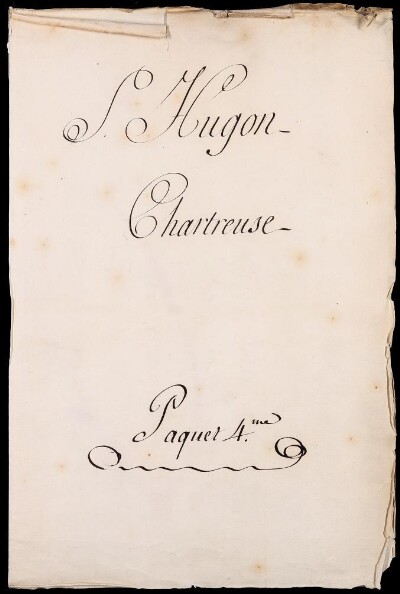 S. Hugon -
Chartreuse -
Paquet 4.me